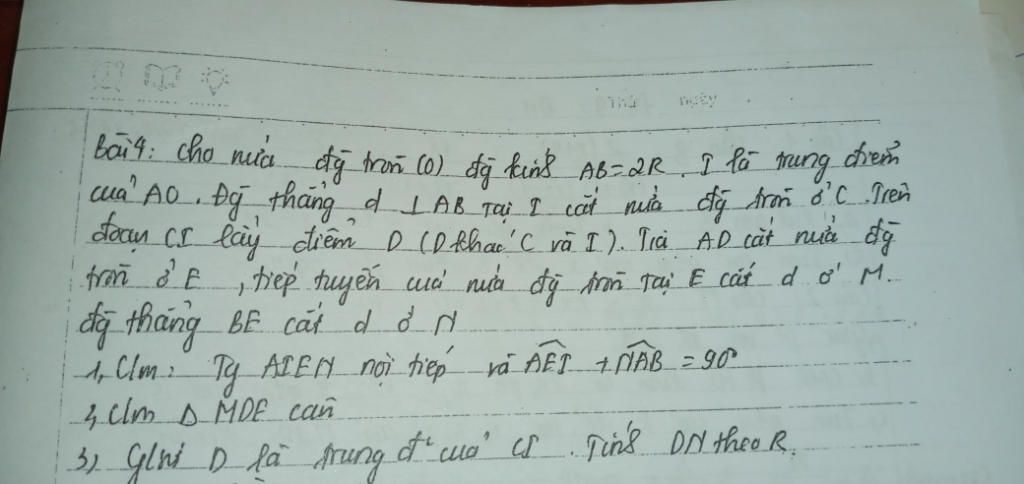 Thứ ngày
Bài 4: Cho nửa đg̃ tròn (O) đg̃ kính AB=2R. I là trung điểm
của AO. Đg̃ thẳng d ⊥ AB tại I cắt nửa đg̃ tròn ở C. Trên
đoạn CI lấy điểm D (D khác C và I). Tia AD cắt nửa đg̃
tròn ở E, tiếp tuyến của nửa đg̃ tròn tại E cắt d ở M.
đg̃ thẳng BE cắt d ở N
1, C/m: Tg AIEN nội tiếp và \widehat{AEI} + \widehat{NAB} = 90°
2, C/m Δ MDE cân
3) G/sử D là trung đ² của CI. Tính DN theo R.